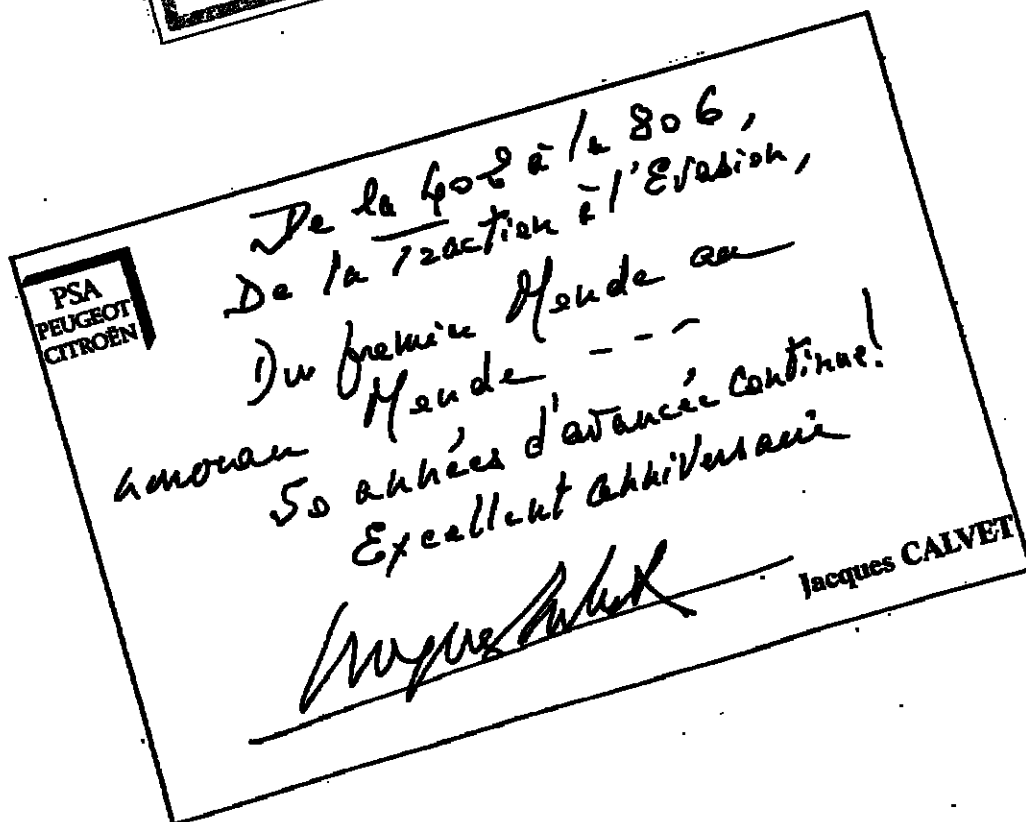 PSA
PEUGEOT
CITROËN
De la 402 à la 806,
De la Traction à l'Evasion,
Du premier Monde au
nouveau Monde ---
50 années d'avancée continue!
Excellent anniversaire
Jacques Calvet
Jacques CALVET